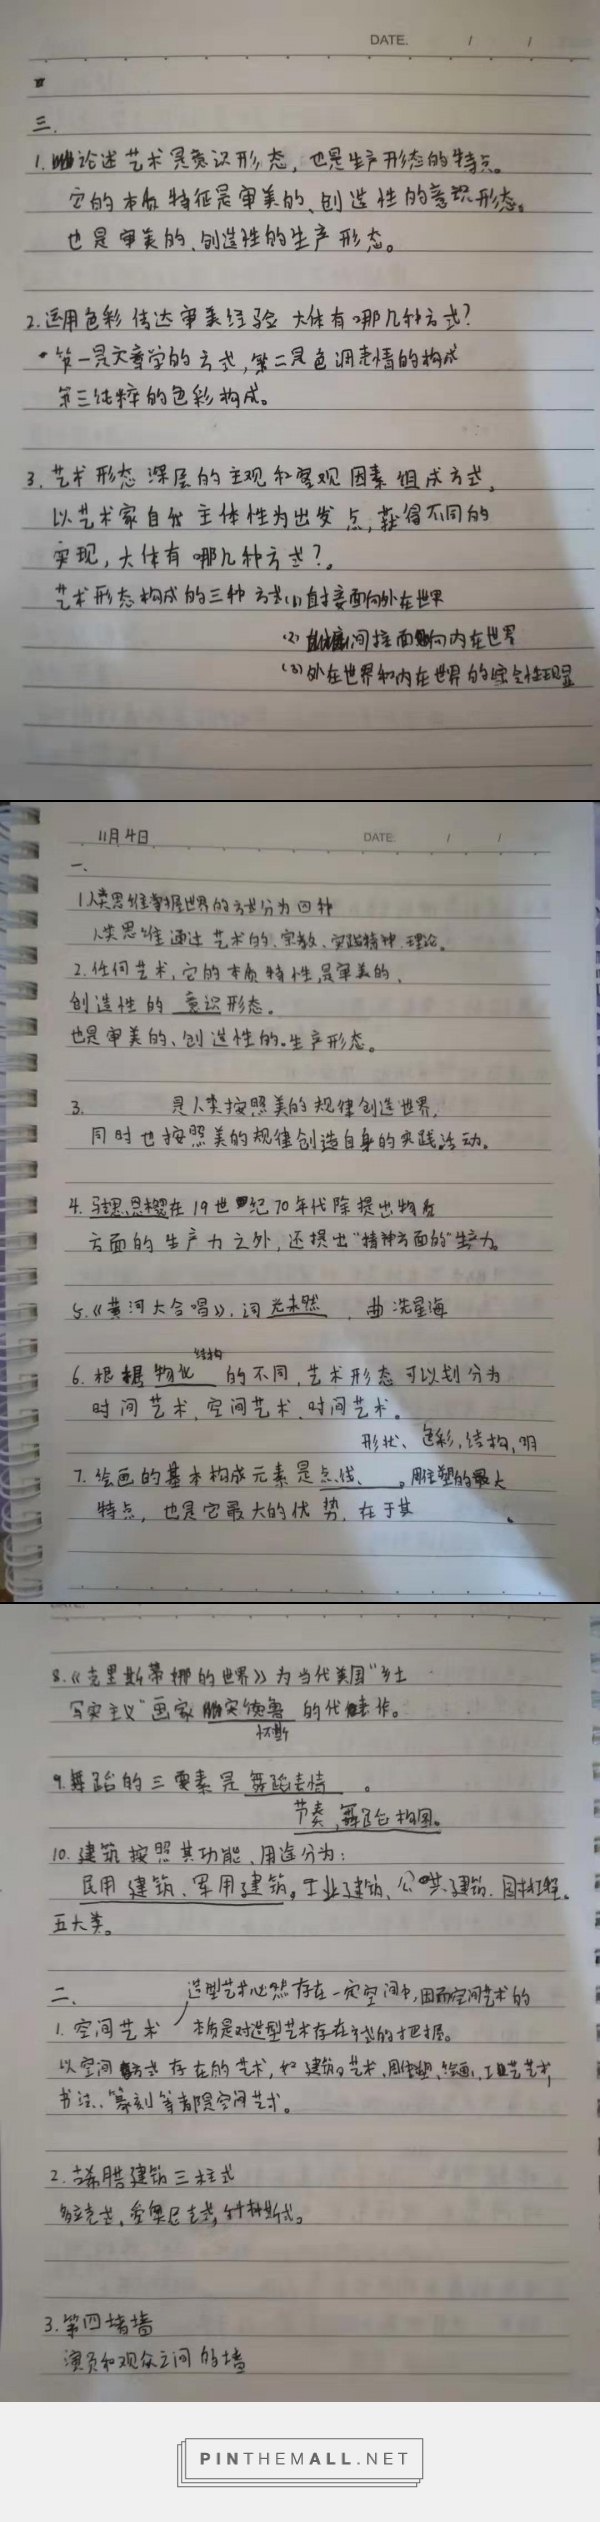 DATE. / /
三.
1. 论述艺术是意识形态，也是生产形态的特点。
它的本质特征是审美的、创造性的意识形态。
也是审美的、创造性的生产形态。
2.运用色彩传达审美经验 大体有哪几种方式？
第一是文学的方式，第二是色调表情的构成
第三纯粹的色彩构成。
3. 艺术形态深层的主观和客观因素组成方式，
以艺术家自我主体性为出发点，获得不同的
实现，大体有哪几种方式？。
艺术形态构成的三种方式(1)直接面向外在世界
(2) 间接面向内在世界
(3)外在世界和内在世界的综合性现显
11月4日 DATE. / /
一、
1.人类思维掌握世界的方式分为四种
人类思维通过艺术的、宗教、实践精神、理论。
2.任何艺术，它的本质特性，是审美的、
创造性的 意识形态。
也是审美的、创造性的.生产形态。
3. 是人类按照美的规律创造世界，
同时也按照美的规律创造自身的实践活动。
4. 马克思、恩格斯在19世纪70年代除提出物质
方面的生产力之外，还提出“精神方面的”生产力。
5.《黄河大合唱》，词 光未然 ，曲 冼星海
结构
6. 根据 物化 的不同，艺术形态可以划分为
时间艺术，空间艺术、时间艺术。
形状、色彩，结构，明
7. 绘画的基本构成元素是点线、 。雕塑的最大
特点，也是它最大的优势，在于其 。
DATE.
8.《克里斯蒂娜的世界》为当代美国“乡土
写实主义”画家 的代 作。
怀斯
9.舞蹈的三要素是 舞蹈表情 。
节奏，舞蹈构图。
10. 建筑按照其功能、用途分为：
民用建筑、军用建筑。工业建筑、公共建筑、园林工程。
五大类。
二、 造型艺术必然存在一定空间中，因而空间艺术的
1. 空间艺术 本质是对造型艺术存在方式的把握。
以空间方式存在的艺术，如建筑艺术、雕塑、绘画、工艺艺术，
书法、篆刻等都是空间艺术。
2.古希腊建筑三柱式
多立克式，爱奥尼克式，科林斯式。
3.第四堵墙
演员和观众之间的墙
PINTHEMALL.NET